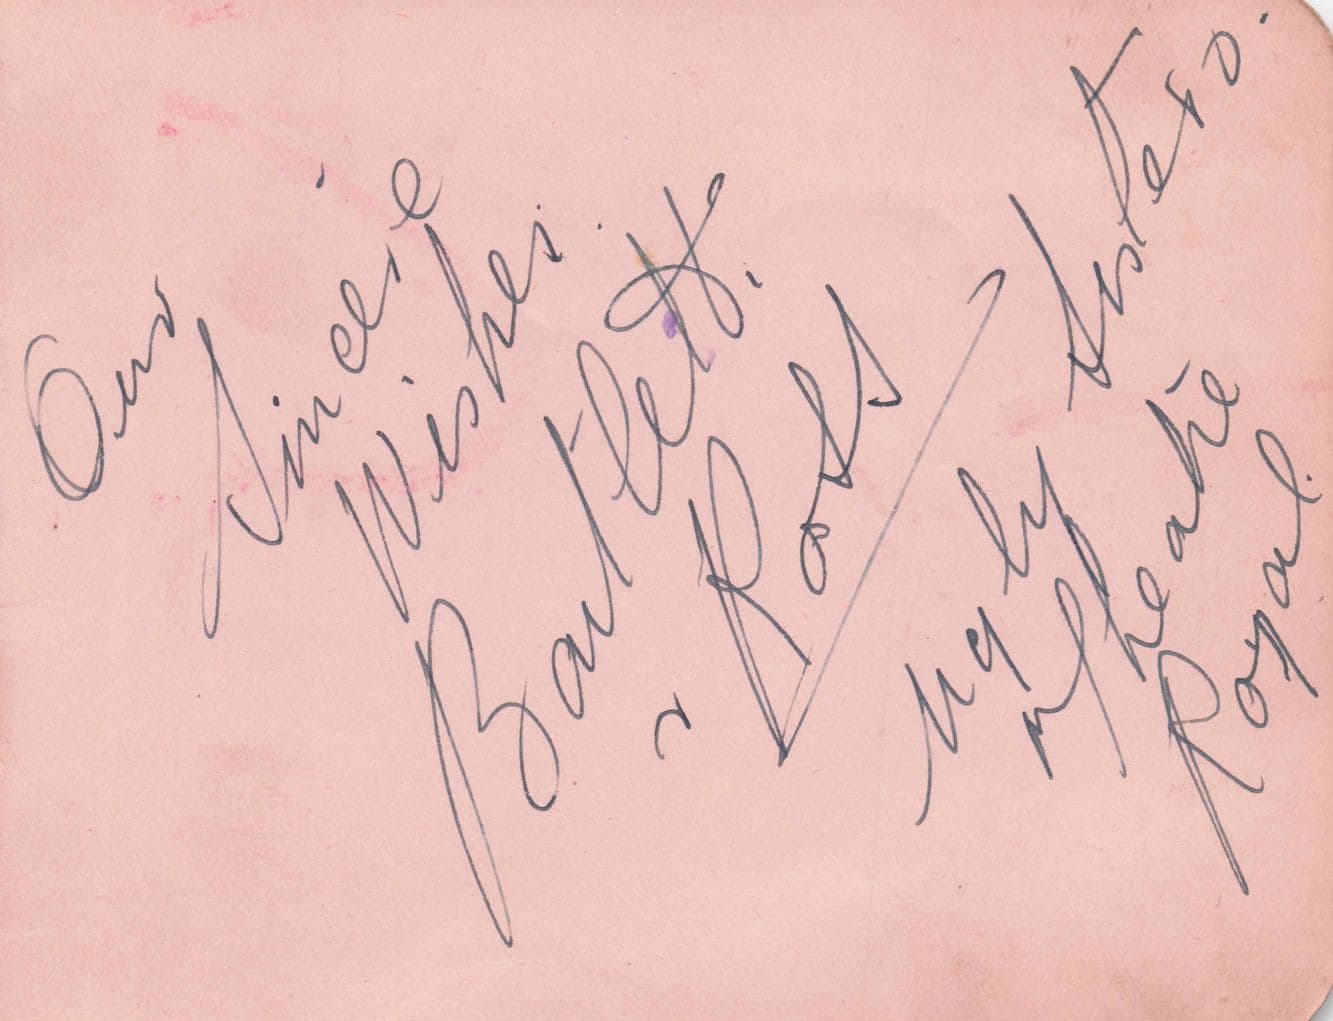 Our
Sincere
Wishes.
Bartlett.
& Ross
Ugly Sisters.
Theatre
Royal.